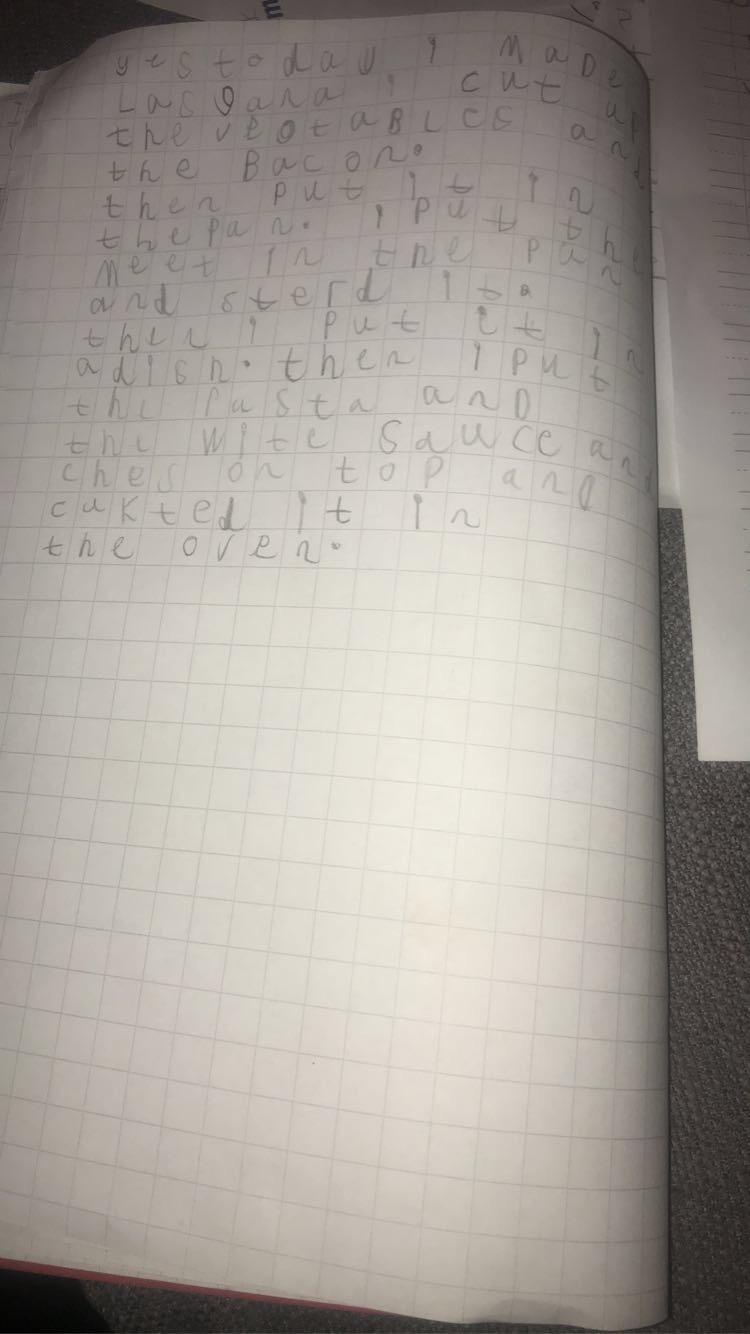 yestoday i made
Lasgana i cut up
the vegtaBLes and
the Bacon.
then put it in
thepan. i put the
meet in the pan
and sterd it.
then i put it in
adish. then i put
the Pasta anD
the wite Sauce and
ches on top and
cukted it in
the oven.